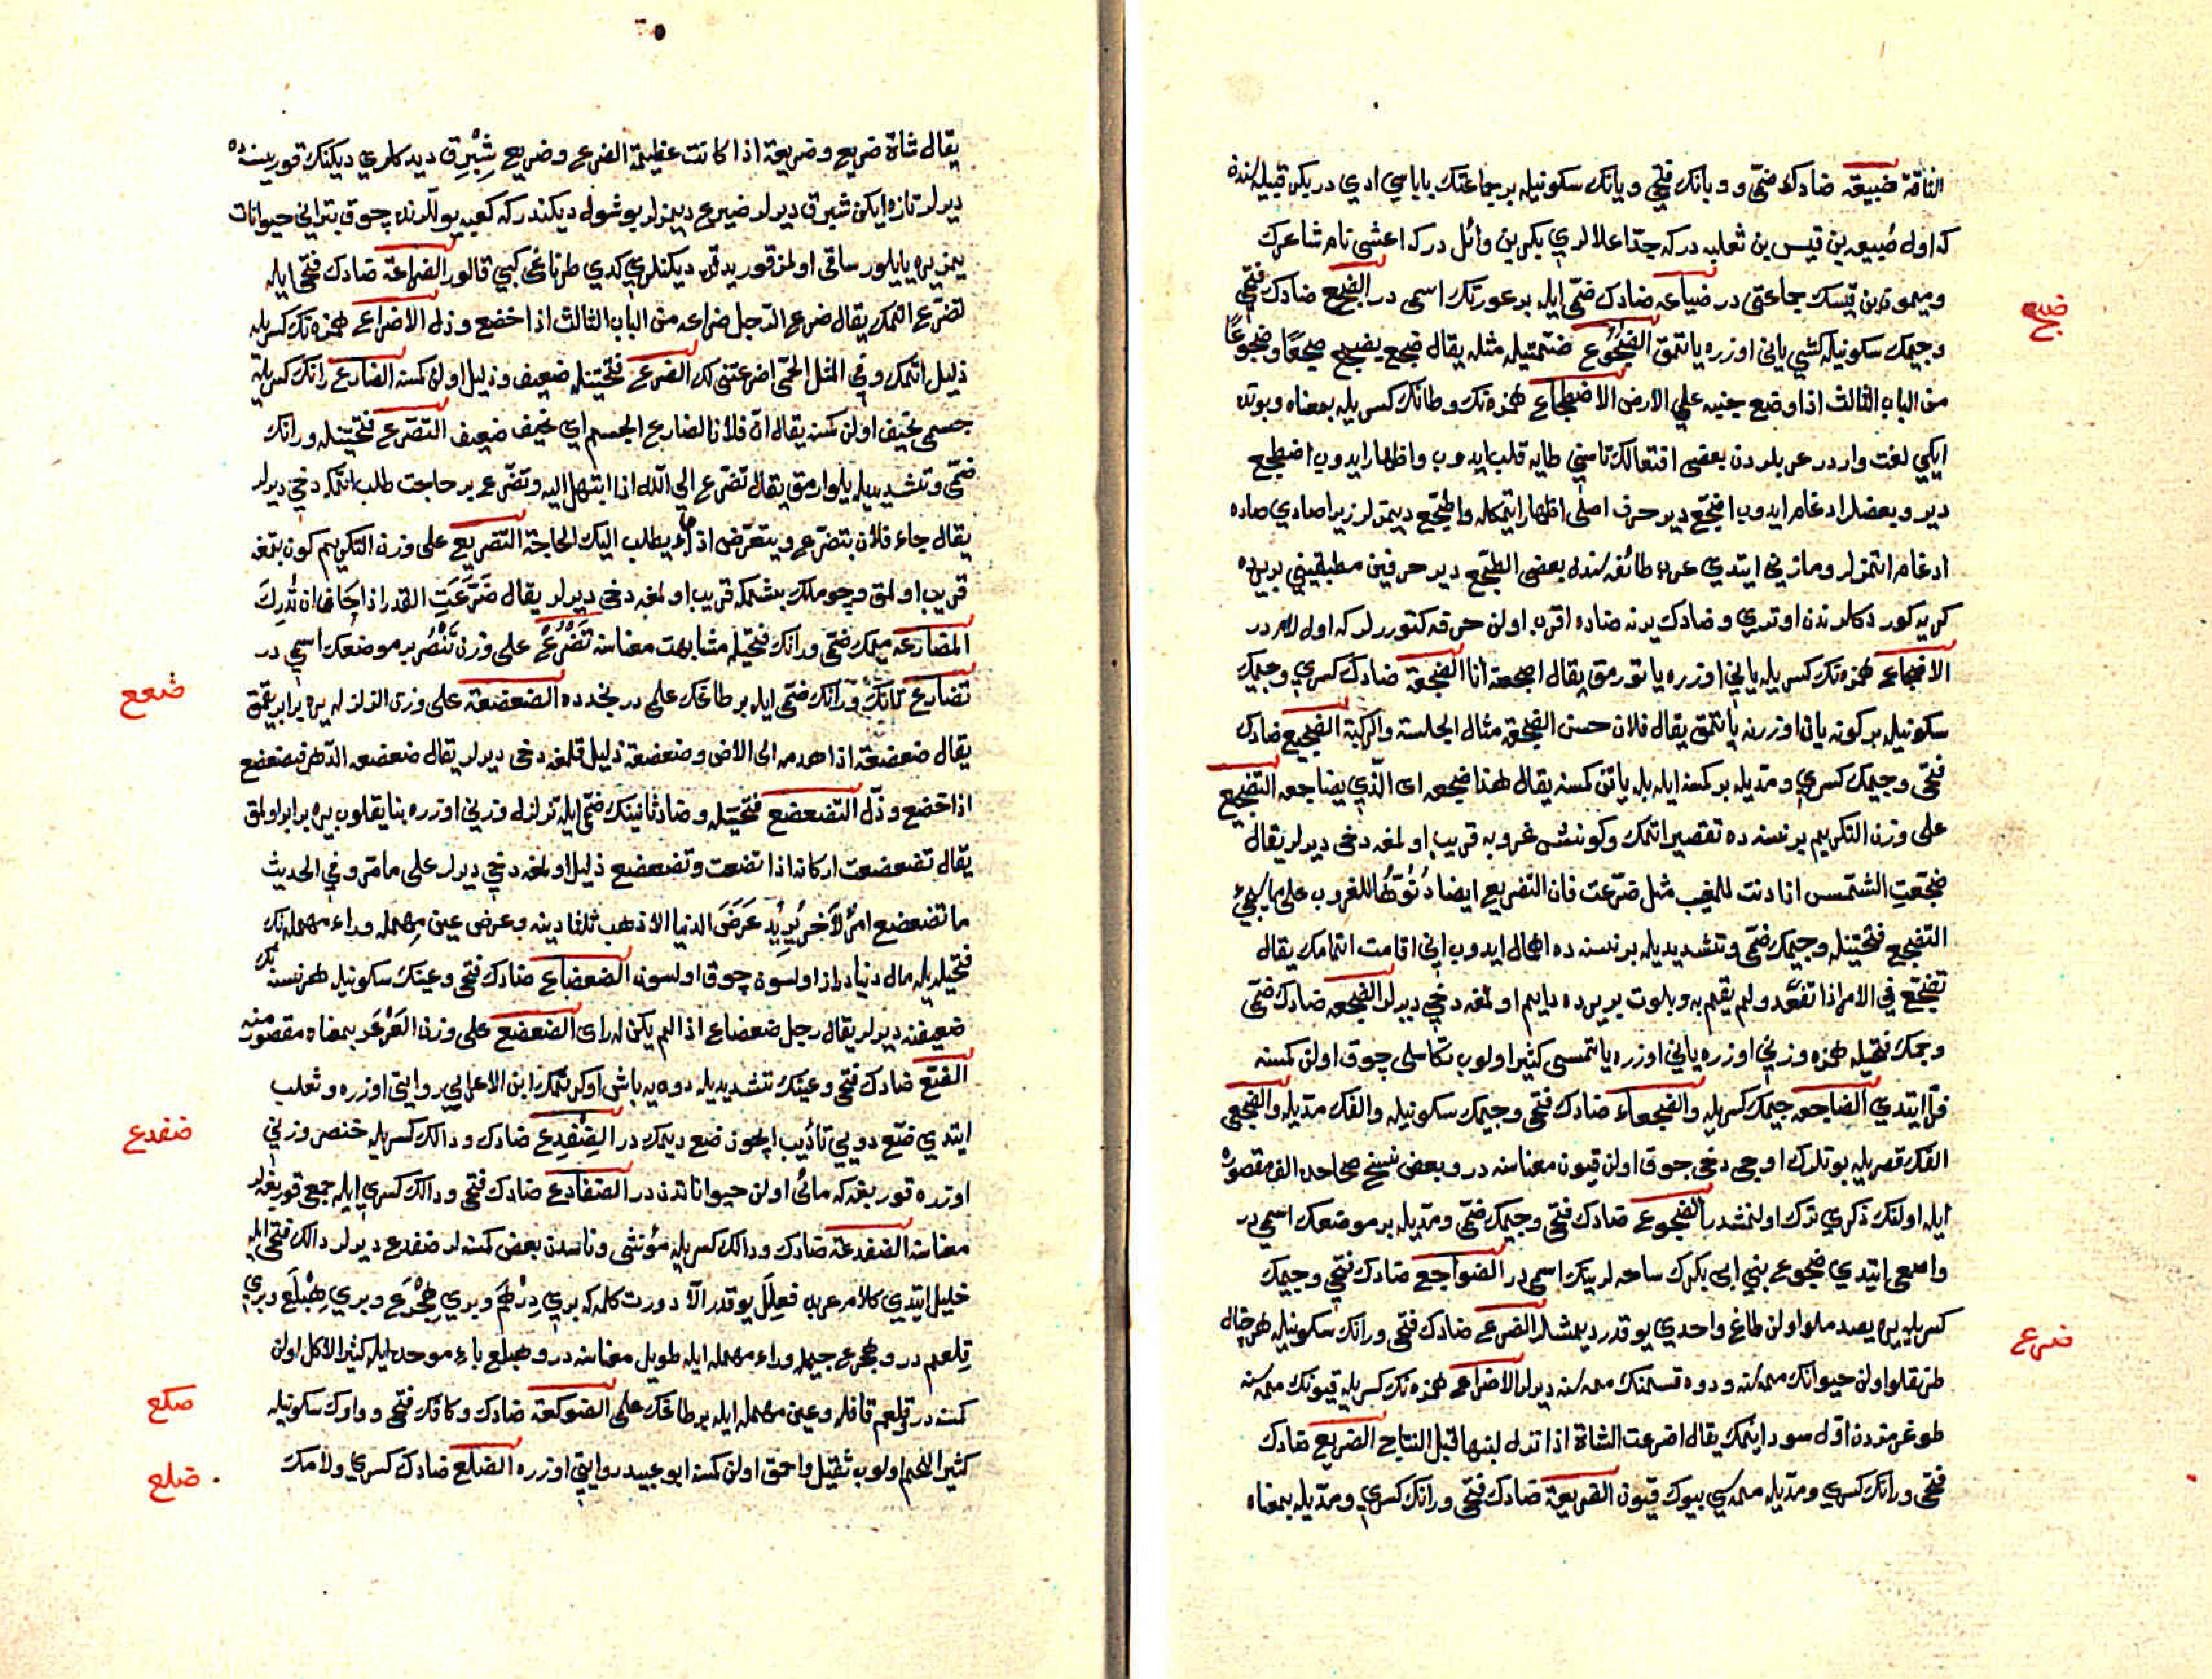 الناقة ضبيعه ضادك ضمى و و بانك فتحى ويانك سكونيله بر جماعتك باباسي ادي در بكر قبيله سنده
كه اول ضبيعه بن قيس بن ثعلبه در كه جدا علالري بكر بن وائل در كه اعشى نام شاعرك
وميمون بن قيسك جماعتى در ضباعه ضادك ضمى ايله بر عورتك اسمى در الضجع ضادك فتحى
ضجع
وجيمك سكونيله كشي يانى اوزره ياتمق الضجوع ضمتيله مثله يقال ضجع يضجع ضجعا وضجوعا
من الباب الثالث اذا وضع جنبه علي الارض الاضطجاع همزه نك وطانك كسريله بمعناه وبوند
ايكي لغت واردر عربلردن بعضى افتعالك تاسني طايه قلب ايدوب واظهار ايدوب اضطجع
دير وبعضلر ادغام ايدوب اضجع دير حرف اصلى اظهار ايتمكله واطجع ديمزلر زيرا صادي صاده
ادغام ايتمزلر ومازني ايتدي عرب طائفه سنده بعضى الطجع دير حرفين مطبقيني بر يرده
كريه كوردكلرندن اوتري وضادك يرنه ضاده اقرب اولن حرفه كتوررلر كه اول لامدر
الاضجاع همزه نك كسريله ياني اوزره ياتورمق يقال اضجعته انا الضجعة ضادك كسري وجيمك
سكونيله بر كونه يانى اوزرنه ياتمق يقال فلان حسن الضجعة مثال الجلسة والركبة الضجيع ضادك
فتحى وجيمك كسري ومديله بر كمسنه ايله بله ياتن كمسنه يقال هذا ضجيعه اى الذي يضاجعه التضجيع
على وزن التكريم بر نسنه ده تقصير اتمك وكونش غروبه قريب اولمغه دخى ديرلر يقال
ضجعت الشمس اذا دنت للمغيب مثل ضرعت فان التضريع ايضا دنوها للغروب على ما سيجئ
التضجع فتحتينله وجيمك ضمى وتشديديله بر نسنه ده اهمال ايدوب اني اقامت اتمامك يقال
تضجع في الامر اذا تقعد ولم يقم به وبلوت بر يرده دايم اولمغه دخي ديرلر الضجعه ضادك ضمى
وجيمك فتحيله همزه وزني اوزره ياني اوزره ياتمسى كثير اولوب تكاسلى چوق اولن كمسنه
فرا ايتدي الضاجعه جيمك كسريله والضجعاء ضادك فتحى وجيمك سكونيله والفك مديله والضجعى
الفك قصريله بونلرك اوچى دخى چوق اولن قيون معناسنه در وبعض نسخ صحاحده الف مقصوره
ايله اولنك ذكري ترك اولنمشدر الضجوع ضادك فتحى وجيمك ضمى ومديله بر موضعك اسمى در
واصمعى ايتدي ضجوع بنى ابى بكرك ساحه لرينك اسمى در الضواجع ضادك فتحى وجيمك
كسريله يره يصدملو اولن طاغ واحدي يوقدر ديمشلر الضرع ضادك فتحى ورانك سكونيله هر خال
ضرع
طرنقلو اولن حيوانك ممه سنه ودوه قسمنك ممه سنه ديرلر الاضراع همزه نك كسريله قيونك ممه سنه
طوغرمزدن اول سود اينمك يقال اضرعت الشاة اذا نزل لبنها قبل النتاج الضريع ضادك
فتحى ورانك كسري ومديله ممه سي بيوك قيون الضريعة ضادك فتحى ورانك كسري ومديله بمعناه
يقال شاة ضريع وضريعة اذا كانت عظيمة الضرع وضريع شبرق ديدكلري ديكنك قوريسنه ده
ديرلر تازه ايكن شبرق ديرلر ضريع ديمزلر بو شول ديكندر كه كعبه يوللرنده چوق بتر اني حيوانات
يمز يره يايلور ساقى اولمز قوريدقده ديكنلري كدي طرناغى كبي قالور الضراعة ضادك فتحى ايله
تضرع اتمك يقال ضرع الرجل ضراعه من الباب الثالث اذا خضع وذل الاضراع همزه نك كسريله
ذليل اتمك وفي المثل الحمى اضرعتنى لك الضرع فتحتينله ضعيف وذليل اولن كمسنه الضارع رانك كسريله
جسمى نحيف اولن كمسنه يقال ان فلانا لضارع الجسم اي نحيف ضعيف التضرع فتحتينله ورانك
ضمى وتشديديله يلوارمق يقال تضرع الى الله اذا ابتهل اليه وتضرع بر حاجت طلب اتمكه دخي ديرلر
يقال جاء فلان يتضرع ويتعرض اذا جاء يطلب اليك الحاجة التضريع على وزن التكريم كون بتمغه
قريب اولمق وچوملك بشمكه قريب اولمغه دخى ديرلر يقال ضرعت القدر اذا حان ان تدرك
المضارعه ميمك ضمى ورانك فتحيله مشابهت معناسنه تضرع على وزن تنصر بر موضعك اسمى در
تضارع تانك ورانك ضمى ايله بر طاغك علمى در نجدده الضعضعة على وزن الزلزله يره برابر يقمق
ضعع
يقال ضعضعه اذا هدمه الى الارض وضعضعه ذليل قلمغه دخى ديرلر يقال ضعضعه الدهر فتضعضع
اذا خضع وذل التضعضع فتحتينله وضاد ثانينك ضمى ايله تزلزل وزني اوزره بنا يقلوب يره برابر اولمق
يقال تضعضعت اركانه اذا تضعت وتضعضع ذليل اولمغه دخى ديرلر على ما مر وفي الحديث
ما تضعضع امرؤ لآخر يريد عرض الدنيا الا ذهب ثلثا دينه وعرض عين مهمله وراء مهمله نك
فتحيله يله مال دنيادر از اولسون چوق اولسون الضعضاع ضادك فتحى وعينك سكونيله هر نسنه نك
ضعيفنه ديرلر يقال رجل ضعضاع اذا لم يكن له راى الضعضع على وزن العرعر بمعناه مقصور منه
الضع ضادك فتحى وعينك تشديديله دوه يه باش اوكرتمك ابن الاعرابي روايتى اوزره وثعلب
ايتدي ضع دوه يي تأديب ايچون ضع ديمك در الضفدع ضادك ودالك كسريله خنصر وزني
ضفدع
اوزره قوربغه كه مائى اولن حيواناتدندر الضفادع ضادك فتحى ودالك كسري ايله جمع قوربغه لر
معناسنه الضفدعة ضادك ودالك كسريله مؤنثى وناسدن بعض كمسنه لر ضفدع ديرلر دالك فتحى ايله
خليل ايتدي كلام عربده فعلل يوقدر الا دورت كلمه كه بري درهم وبري هجرع وبري هبلع وبري
قلعم در وهجرع جيم وراء مهمله ايله طويل معناسنه در وهبلع باء موحده ايله كثير الاكل اولن
كمسنه در قلعم قافله وعين مهمله ايله بر طاغك علمى الضوكعة ضادك وكافك فتحى وواوك سكونيله
ضكع
كثير اللحم اولوب ثقيل واحمق اولن كمسنه ابو عبيد روايتى اوزره الضلع ضادك كسري ولامك
ضلع